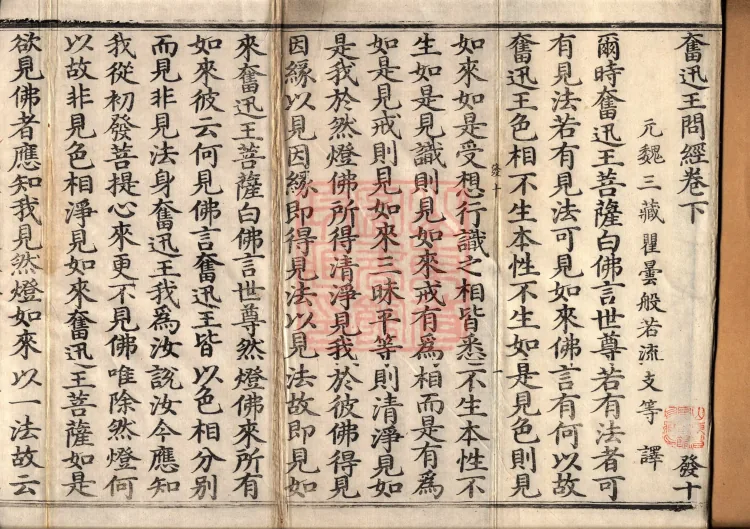 奮迅王問經卷下
發十
元魏三藏瞿曇般若流支等譯
爾時奮迅王菩薩白佛言世尊若有法者可
有見法若有見法可見如來佛言有何以故
奮迅王色相不生本性不生如是見色則見
發十
一
如來如是受想行識之相皆悉不生本性不
生如是見識則見如來戒有為相而是有為
如是見戒則見如來三昧平等則清淨見如
是我於然燈佛所得清淨見我於彼佛得見
因緣以見因緣即得見法以見法故即見如
來奮迅王菩薩白佛言世尊然燈佛來所有
如來彼云何見佛言奮迅王皆以色相分別
而見非見法身奮迅王我為汝說汝今應知
我從初發菩提心來更不見佛唯除然燈何
以故非見色相淨見如來奮迅王菩薩如是
欲見佛者應知我見然燈如來以一法故云